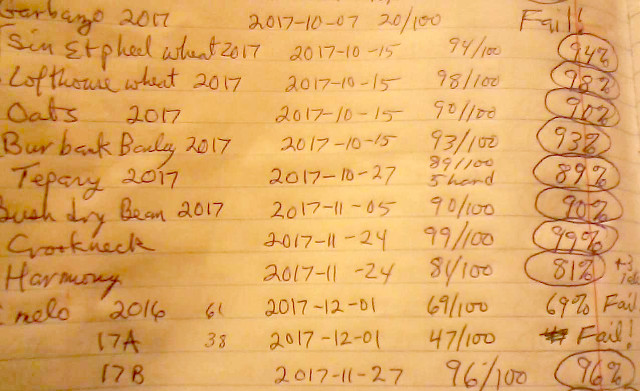 Garbanzo 2017 2017-10-07 20/100 Fail!
Sin Et pheel wheat 2017 2017-10-15 94/100 94%
Lofthouse wheat 2017 2017-10-15 98/100 98%
Oats 2017 2017-10-15 90/100 90%
Burbank Barley 2017 2017-10-15 93/100 93%
Tepary 2017 2017-10-27 89/100 5 hard 89%
Bush dry Bean 2017 2017-11-05 90/100 90%
Crookneck 2017-11-24 99/100 99%
Harmony 2017-11-24 81/100 81%
melo 2016 61 2017-12-01 69/100 69% Fail
17A 38 2017-12-01 47/100 Fail!
17B 2017-11-27 96/100 96%